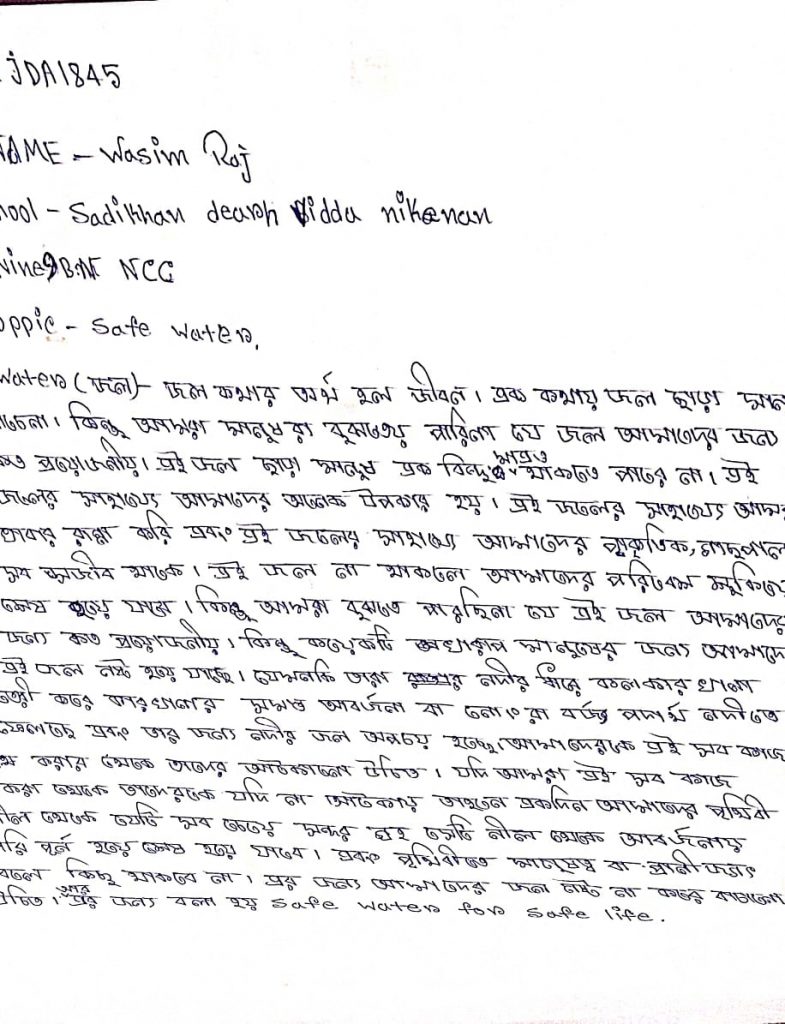 JDA1845
NAME - Wasim Raj
hool - Sadikhan dearh Vidda niketan
Nine 9 BN NCC
oppic - Safe water.
water (জল)- জল কথার অর্থ হল জীবন। এক কথায় জল ছাড়া মান
বাচেনা। কিন্তু আমরা মানুষরা বুঝতেয় পারিনা যে জল আমাদের জন্য
কত প্রয়োজনীয়। এই জল ছাড়া মানুষ এক বিন্দু মাত্রও থাকতে পারে না। এই
জলের সাহায্যে আমাদের অনেক উপকার হয়। এই জলের সাহায্যে আমরা
খাবার রান্না করি এবং এই জলের সাহায্যে আমাদের প্রকৃতিক, গাছপালা
সব সজীব থাকে। এই জল না থাকলে আমাদের পরিবেস
শেষ হয়ে যাবে। কিন্তু আমরা বুঝতে পারছিনা যে এই জল আমাদের
জন্য কত প্রয়োজনীয়। কিন্তু কয়েকটি অখারাপ মানুষের জন্য আমাদে
এই জল নষ্ট হয়ে যাচ্ছে। যেমনকি তারা নদীর ধারে কলকার খানা
তৈরী করে কারখানার সমস্ত আবর্জনা বা নোংরা বর্জ্য পদার্থ নদীতে
ফেলছে এবং তার জন্য নদীর জল অপচয় হচ্ছে। আমাদেরকে এই সব কাজে
করার থেকে তাদের আটকানো উচিত। যদি আমরা এই সব কাজে
করা থেকে তাদেরকে যদি না আটকায় তাহলে একদিন আমাদের পৃথিবী
নীল থেকে যেটি সব চেয়ে সুন্দর গ্রহ সেটি নীল থেকে আবর্জনায়
পরি পূর্ন হয়ে শেষ হয়ে যাবে। এবং পৃথিবীতে মানুষত্ব বা প্রানী জগৎ
বলে কিছু থাকবে না। এর জন্য আমাদের জল নষ্ট না করে বাচানো
উচিত। তার এর জন্য বলা হয় safe water for safe life.